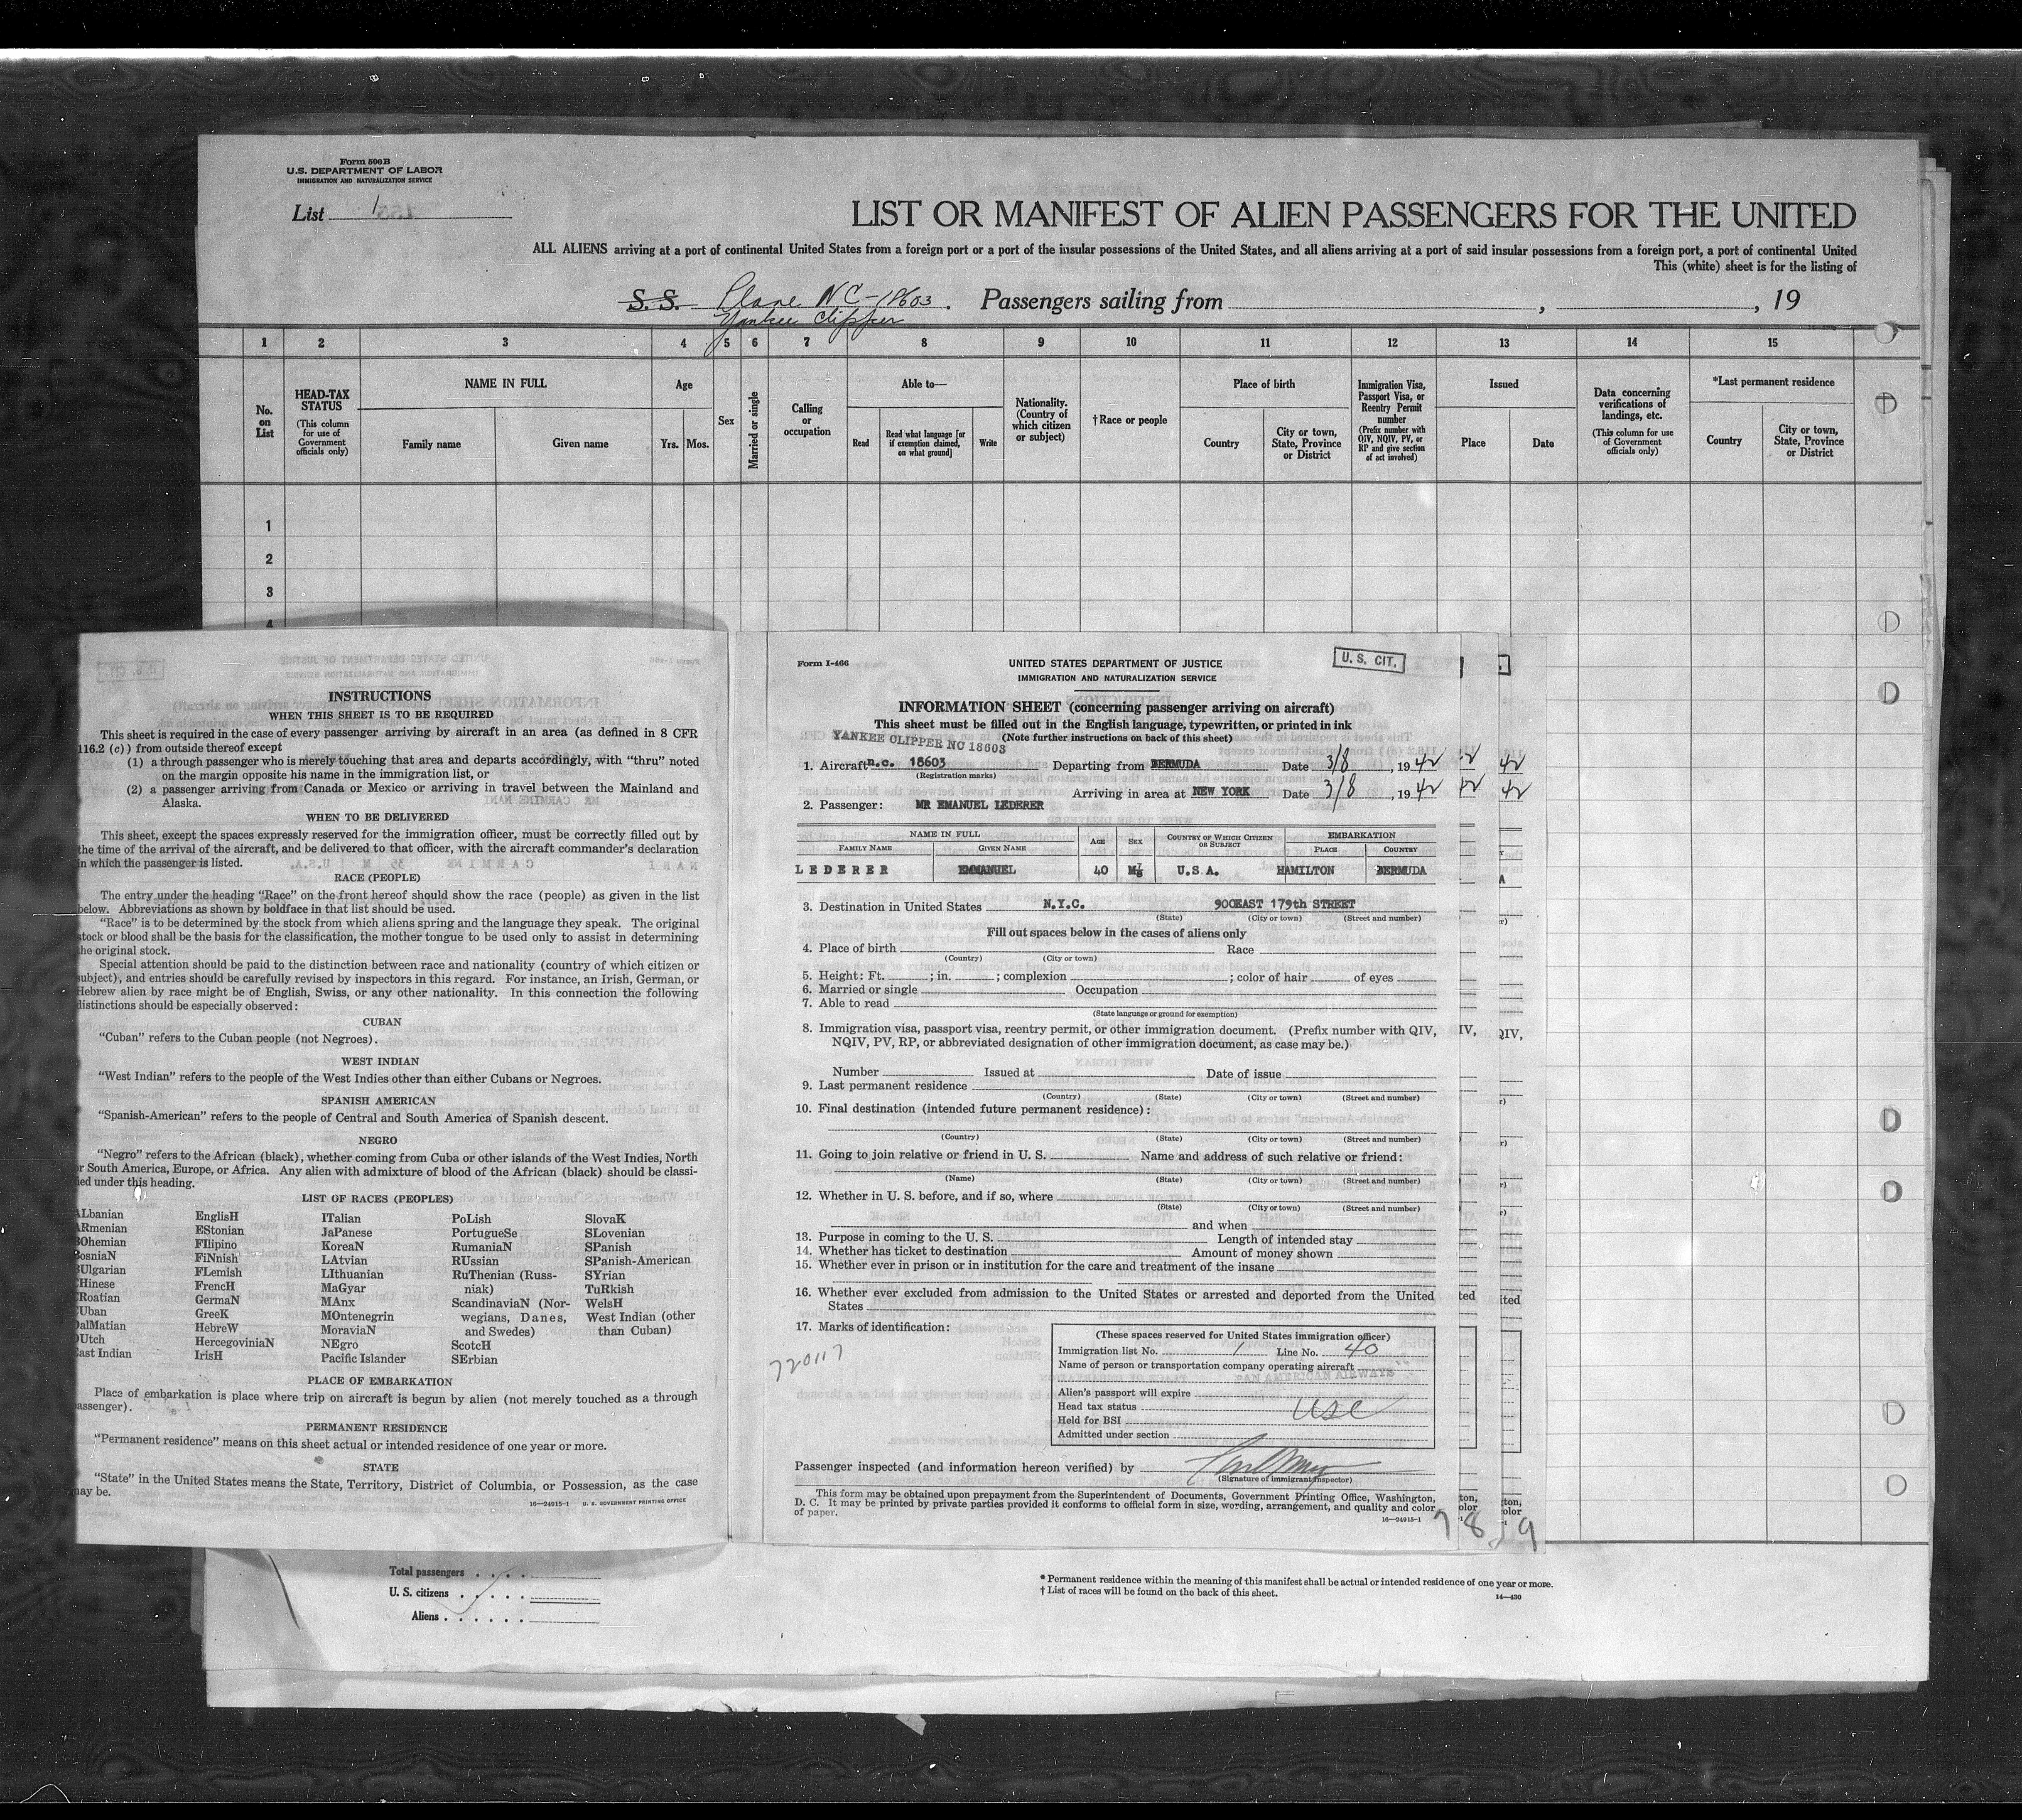 Form 506B
U.S. DEPARTMENT OF LABOR
IMMIGRATION AND NATURALIZATION SERVICE
List 1
LIST OR MANIFEST OF ALIEN PASSENGERS FOR THE UNITED
ALL ALIENS arriving at a port of continental United States from a foreign port or a port of the insular possessions of the United States, and all aliens arriving at a port of said insular possessions from a foreign port, a port of continental United
This (white) sheet is for the listing of
S. S. Plane NC-18603. Passengers sailing from , , 19
Yankee Clipper
1 2 3 4 5 6 7 8 9 10 11 12 13 14 15
No. on List
HEAD-TAX STATUS
(This column for use of Government officials only)
NAME IN FULL
Family name Given name
Age
Yrs. Mos.
Sex
Married or single
Calling or occupation
Able to—
Read
Read what language [or if exemption claimed, on what ground]
Write
Nationality. (Country of which citizen or subject)
†Race or people
Place of birth
Country
City or town, State, Province or District
Immigration Visa, Passport Visa, or Reentry Permit number
(Prefix number with QIV, NQIV, PV, or RP and give section of act involved)
Issued
Place Date
Data concerning verifications of landings, etc.
(This column for use of Government officials only)
*Last permanent residence
Country
City or town, State, Province or District
1
2
3
4
INSTRUCTIONS
WHEN THIS SHEET IS TO BE REQUIRED
This sheet is required in the case of every passenger arriving by aircraft in an area (as defined in 8 CFR
116.2 (c)) from outside thereof except
(1) a through passenger who is merely touching that area and departs accordingly, with "thru" noted
on the margin opposite his name in the immigration list, or
(2) a passenger arriving from Canada or Mexico or arriving in travel between the Mainland and
Alaska.
WHEN TO BE DELIVERED
This sheet, except the spaces expressly reserved for the immigration officer, must be correctly filled out by
the time of the arrival of the aircraft, and be delivered to that officer, with the aircraft commander's declaration
in which the passenger is listed.
RACE (PEOPLE)
The entry under the heading "Race" on the front hereof should show the race (people) as given in the list
below. Abbreviations as shown by boldface in that list should be used.
"Race" is to be determined by the stock from which aliens spring and the language they speak. The original
stock or blood shall be the basis for the classification, the mother tongue to be used only to assist in determining
the original stock.
Special attention should be paid to the distinction between race and nationality (country of which citizen or
subject), and entries should be carefully revised by inspectors in this regard. For instance, an Irish, German, or
Hebrew alien by race might be of English, Swiss, or any other nationality. In this connection the following
distinctions should be especially observed:
CUBAN
"Cuban" refers to the Cuban people (not Negroes).
WEST INDIAN
"West Indian" refers to the people of the West Indies other than either Cubans or Negroes.
SPANISH AMERICAN
"Spanish-American" refers to the people of Central and South America of Spanish descent.
NEGRO
"Negro" refers to the African (black), whether coming from Cuba or other islands of the West Indies, North
r South America, Europe, or Africa. Any alien with admixture of blood of the African (black) should be classi-
ied under this heading.
LIST OF RACES (PEOPLES)
ALbanian EnglisH ITalian PoLish SlovaK
ARmenian EStonian JaPanese PortugueSe SLovenian
BOhemian FIlipino KoreaN RumaniaN SPanish
BosniaN FiNnish LAtvian RUssian SPanish-American
BUlgarian FLemish LIthuanian RuThenian (Russ- SYrian
CHinese FrencH MaGyar niak) TuRkish
CRoatian GermaN MAnx ScandinaviaN (Nor- WelsH
CUban GreeK MOntenegrin wegians, Danes, West Indian (other
DalMatian HebreW MoraviaN and Swedes) than Cuban)
DUtch HercegoviniaN NEgro ScotcH
East Indian IrisH Pacific Islander SErbian
PLACE OF EMBARKATION
Place of embarkation is place where trip on aircraft is begun by alien (not merely touched as a through
assenger).
PERMANENT RESIDENCE
"Permanent residence" means on this sheet actual or intended residence of one year or more.
STATE
"State" in the United States means the State, Territory, District of Columbia, or Possession, as the case
may be.
16—24915-1 U. S. GOVERNMENT PRINTING OFFICE
Form I-466
UNITED STATES DEPARTMENT OF JUSTICE
IMMIGRATION AND NATURALIZATION SERVICE
U. S. CIT.
INFORMATION SHEET (concerning passenger arriving on aircraft)
This sheet must be filled out in the English language, typewritten, or printed in ink
(Note further instructions on back of this sheet)
YANKEE CLIPPER NC 18603
1. Aircraft n.c. 18603 Departing from BERMUDA Date 3/8, 1942
(Registration marks)
Arriving in area at NEW YORK Date 3/8, 1942
2. Passenger: MR EMANUEL LEDERER
NAME IN FULL
FAMILY NAME GIVEN NAME
AGE SEX
COUNTRY OF WHICH CITIZEN OR SUBJECT
EMBARKATION
PLACE COUNTRY
LEDERER EMMANUEL 40 M U.S.A. HAMILTON BERMUDA
3. Destination in United States N.Y.C. 900EAST 179th STREET
(State) (City or town) (Street and number)
Fill out spaces below in the cases of aliens only
4. Place of birth Race
(Country) (City or town)
5. Height: Ft. ; in. ; complexion ; color of hair of eyes
6. Married or single Occupation
7. Able to read
(State language or ground for exemption)
8. Immigration visa, passport visa, reentry permit, or other immigration document. (Prefix number with QIV,
NQIV, PV, RP, or abbreviated designation of other immigration document, as case may be.)
Number Issued at Date of issue
9. Last permanent residence
(Country) (State) (City or town) (Street and number)
10. Final destination (intended future permanent residence):
(Country) (State) (City or town) (Street and number)
11. Going to join relative or friend in U. S. Name and address of such relative or friend:
(Name) (State) (City or town) (Street and number)
12. Whether in U. S. before, and if so, where
(State) (City or town) (Street and number)
and when
13. Purpose in coming to the U. S. Length of intended stay
14. Whether has ticket to destination Amount of money shown
15. Whether ever in prison or in institution for the care and treatment of the insane
16. Whether ever excluded from admission to the United States or arrested and deported from the United
States
17. Marks of identification:
720117
(These spaces reserved for United States immigration officer)
Immigration list No. 1 Line No. 40
Name of person or transportation company operating aircraft
PAN AMERICAN AIRWAYS
Alien's passport will expire
Head tax status USC
Held for BSI
Admitted under section
Passenger inspected (and information hereon verified) by
(Signature of immigrant inspector)
This form may be obtained upon prepayment from the Superintendent of Documents, Government Printing Office, Washington,
D. C. It may be printed by private parties provided it conforms to official form in size, wording, arrangement, and quality and color
of paper.
16—24915-1
7 8 9
Total passengers
U. S. citizens
Aliens
* Permanent residence within the meaning of this manifest shall be actual or intended residence of one year or more.
† List of races will be found on the back of this sheet.
14—430